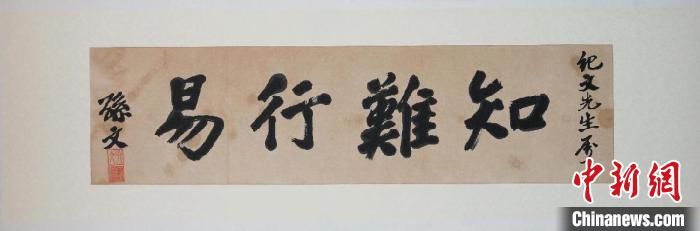 紀文先生
知難行易
孫文
中新網
Chinanews.com